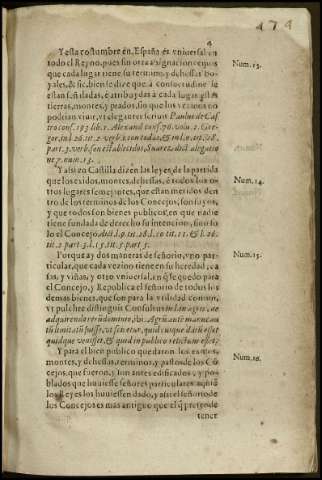 474
4
Y esta costumbre en España es vniversal en
todo el Reyno, pues sin otra asignacion
que cada lugar tiene su termino, y dehessas bo-
yales, & sic, bien se dize que à consuetudine le
estan señaladas, è atribuydas à cada lugar
tierras, montes, y prados, sin que los vezinos no
podrian viuir, vt eleganter scriuit Paulus de Cas
tro cons.
Num. 13.
gor. in l.
part. 3. verb. son establecidos, Suarez, dict. alegatio
ne 7. num. 13.
Y assi en Castilla dizen las leyes de la partida
Num. 14.
que los exidos, montes, dehessas, è todos los o-
tros lugares semejantes, que estan metidos den-
tro de los terminos de los Concejos, son suyos,
y que todos son bienes publicos, en que nadie
tiene fundada de derecho su intencion, sino so-
lo el Concejo,
tit. 2. part. 3. l. 15. tit. 5. part. 5.
Porque ay dos maneras de señorio, vno par-
Num. 15.
ticular, que cada vezino tiene en su heredad, ca
sas, y viñas, y otro vniuersal, en que se quedo para
el Concejo, y Republica el señorio de todos los
demas bienes, que son para la vtilidad comun,
vt pulchre distinguis Consultus in
adquirendo rerum dominio, ibi: Agrū
limitatū fuisse, vt sciretur, quid cuique datū esset
quidque venisset, & quid in publico relictum esset:
Y para el bien publico quedaron los exidos,
Num. 16.
montes, y dehessas, terminos, y pastos de los Co
cejos, que fueron, y son antes edificados, y po-
blados que huuiesse señores particulares, a quiē
los Reyes los huuiessen dado, y assi el señorio de
los Concejos es mas antiguo que el q̃ pretende
tener